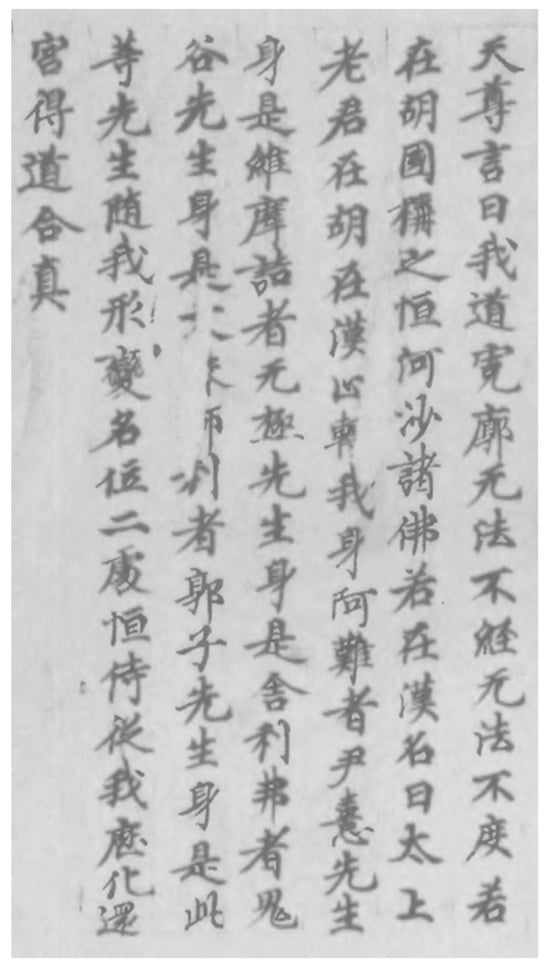 天尊言曰我道寛廓无法不經无法不度若
在胡國稱之恒河沙諸佛若在漢名曰太上
老君在胡在漢心輙我身阿難者尹憙先生
身是維摩詰者无極先生身是舍利弗者鬼
谷先生身是文殊師利者郭子先生身是此
等先生随我形變名位二處恒侍從我應化還
宮得道合真